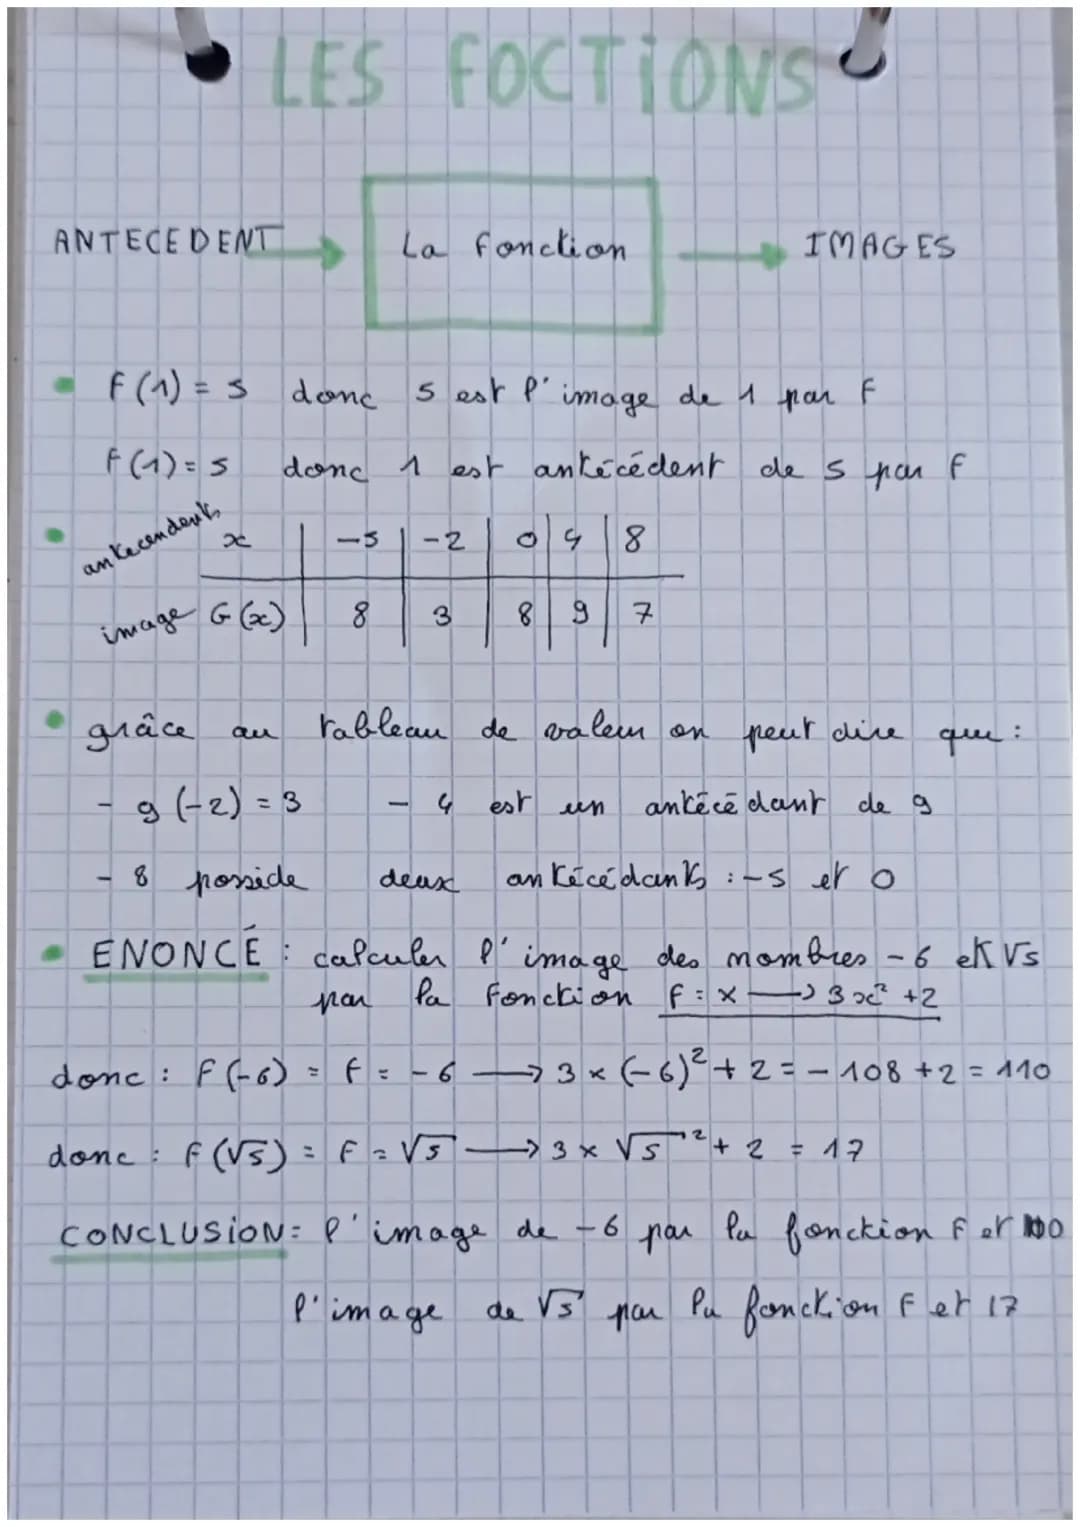 LES FOCTIONS
ANTECEDENT → La fonction → IMAGES
• F(1) = 5 donc 5 est l'image de 1 par F
F(1) = 5 donc 1 est antécédent de 5 par F
• antecendents x | -5 | -2 | 0 | 4 | 8
image G(x) | 8 | 3 | 8 | 9 | 7
• grâce au tableau de valeur on peut dire que :
- g(-2) = 3 - 4 est un antécédant de 9
- 8 posside deux antécédants : -5 et 0
• ENONCÉ : calculer l'image des nombres -6 et √5
par la fonction f = x → 3x² + 2
donc : F(-6) = f = -6 → 3 × (-6)² + 2 = -108 + 2 = 110
donc : F(√5) = F = √5 → 3 × √5² + 2 = 17
CONCLUSION = l'image de -6 par la fonction F et
l'image de √5 par la fonction F et 17